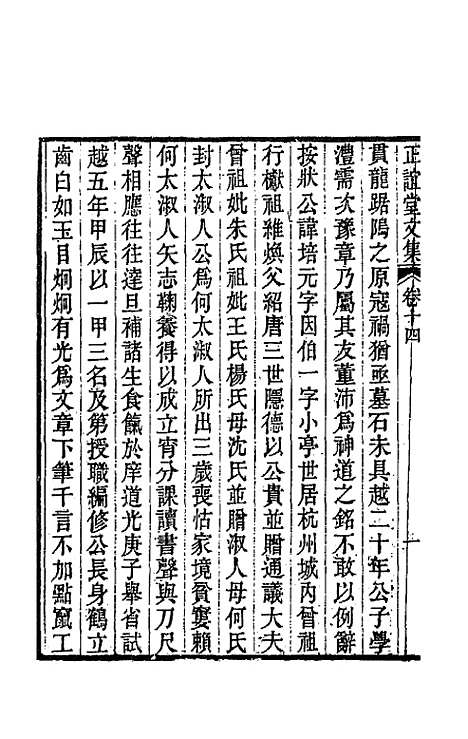 正誼堂文集 卷十四 一
貫龍踞隝之原寇禍猶亟墓石未具越二十年公子學
澧需次豫章乃屬其友董沛爲神道之銘不敢以例辭
按狀公諱培元字因伯一字小亭世居杭州城內曾祖
行櫢祖維煥父紹唐三世隱德以公貴並贈通議大夫
曾祖妣朱氏祖妣王氏楊氏母沈氏並贈淑人母何氏
封太淑人公爲何太淑人所出三歲喪怙家境貧窶賴
何太淑人矢志鞠養得以成立宵分課讀書聲與刀尺
聲相應往往達旦補諸生食餼於庠道光庚子舉省試
越五年甲辰以一甲三名及第授職編修公長身鶴立
齒白如玉目炯炯有光爲文章下筆千言不加點竄工